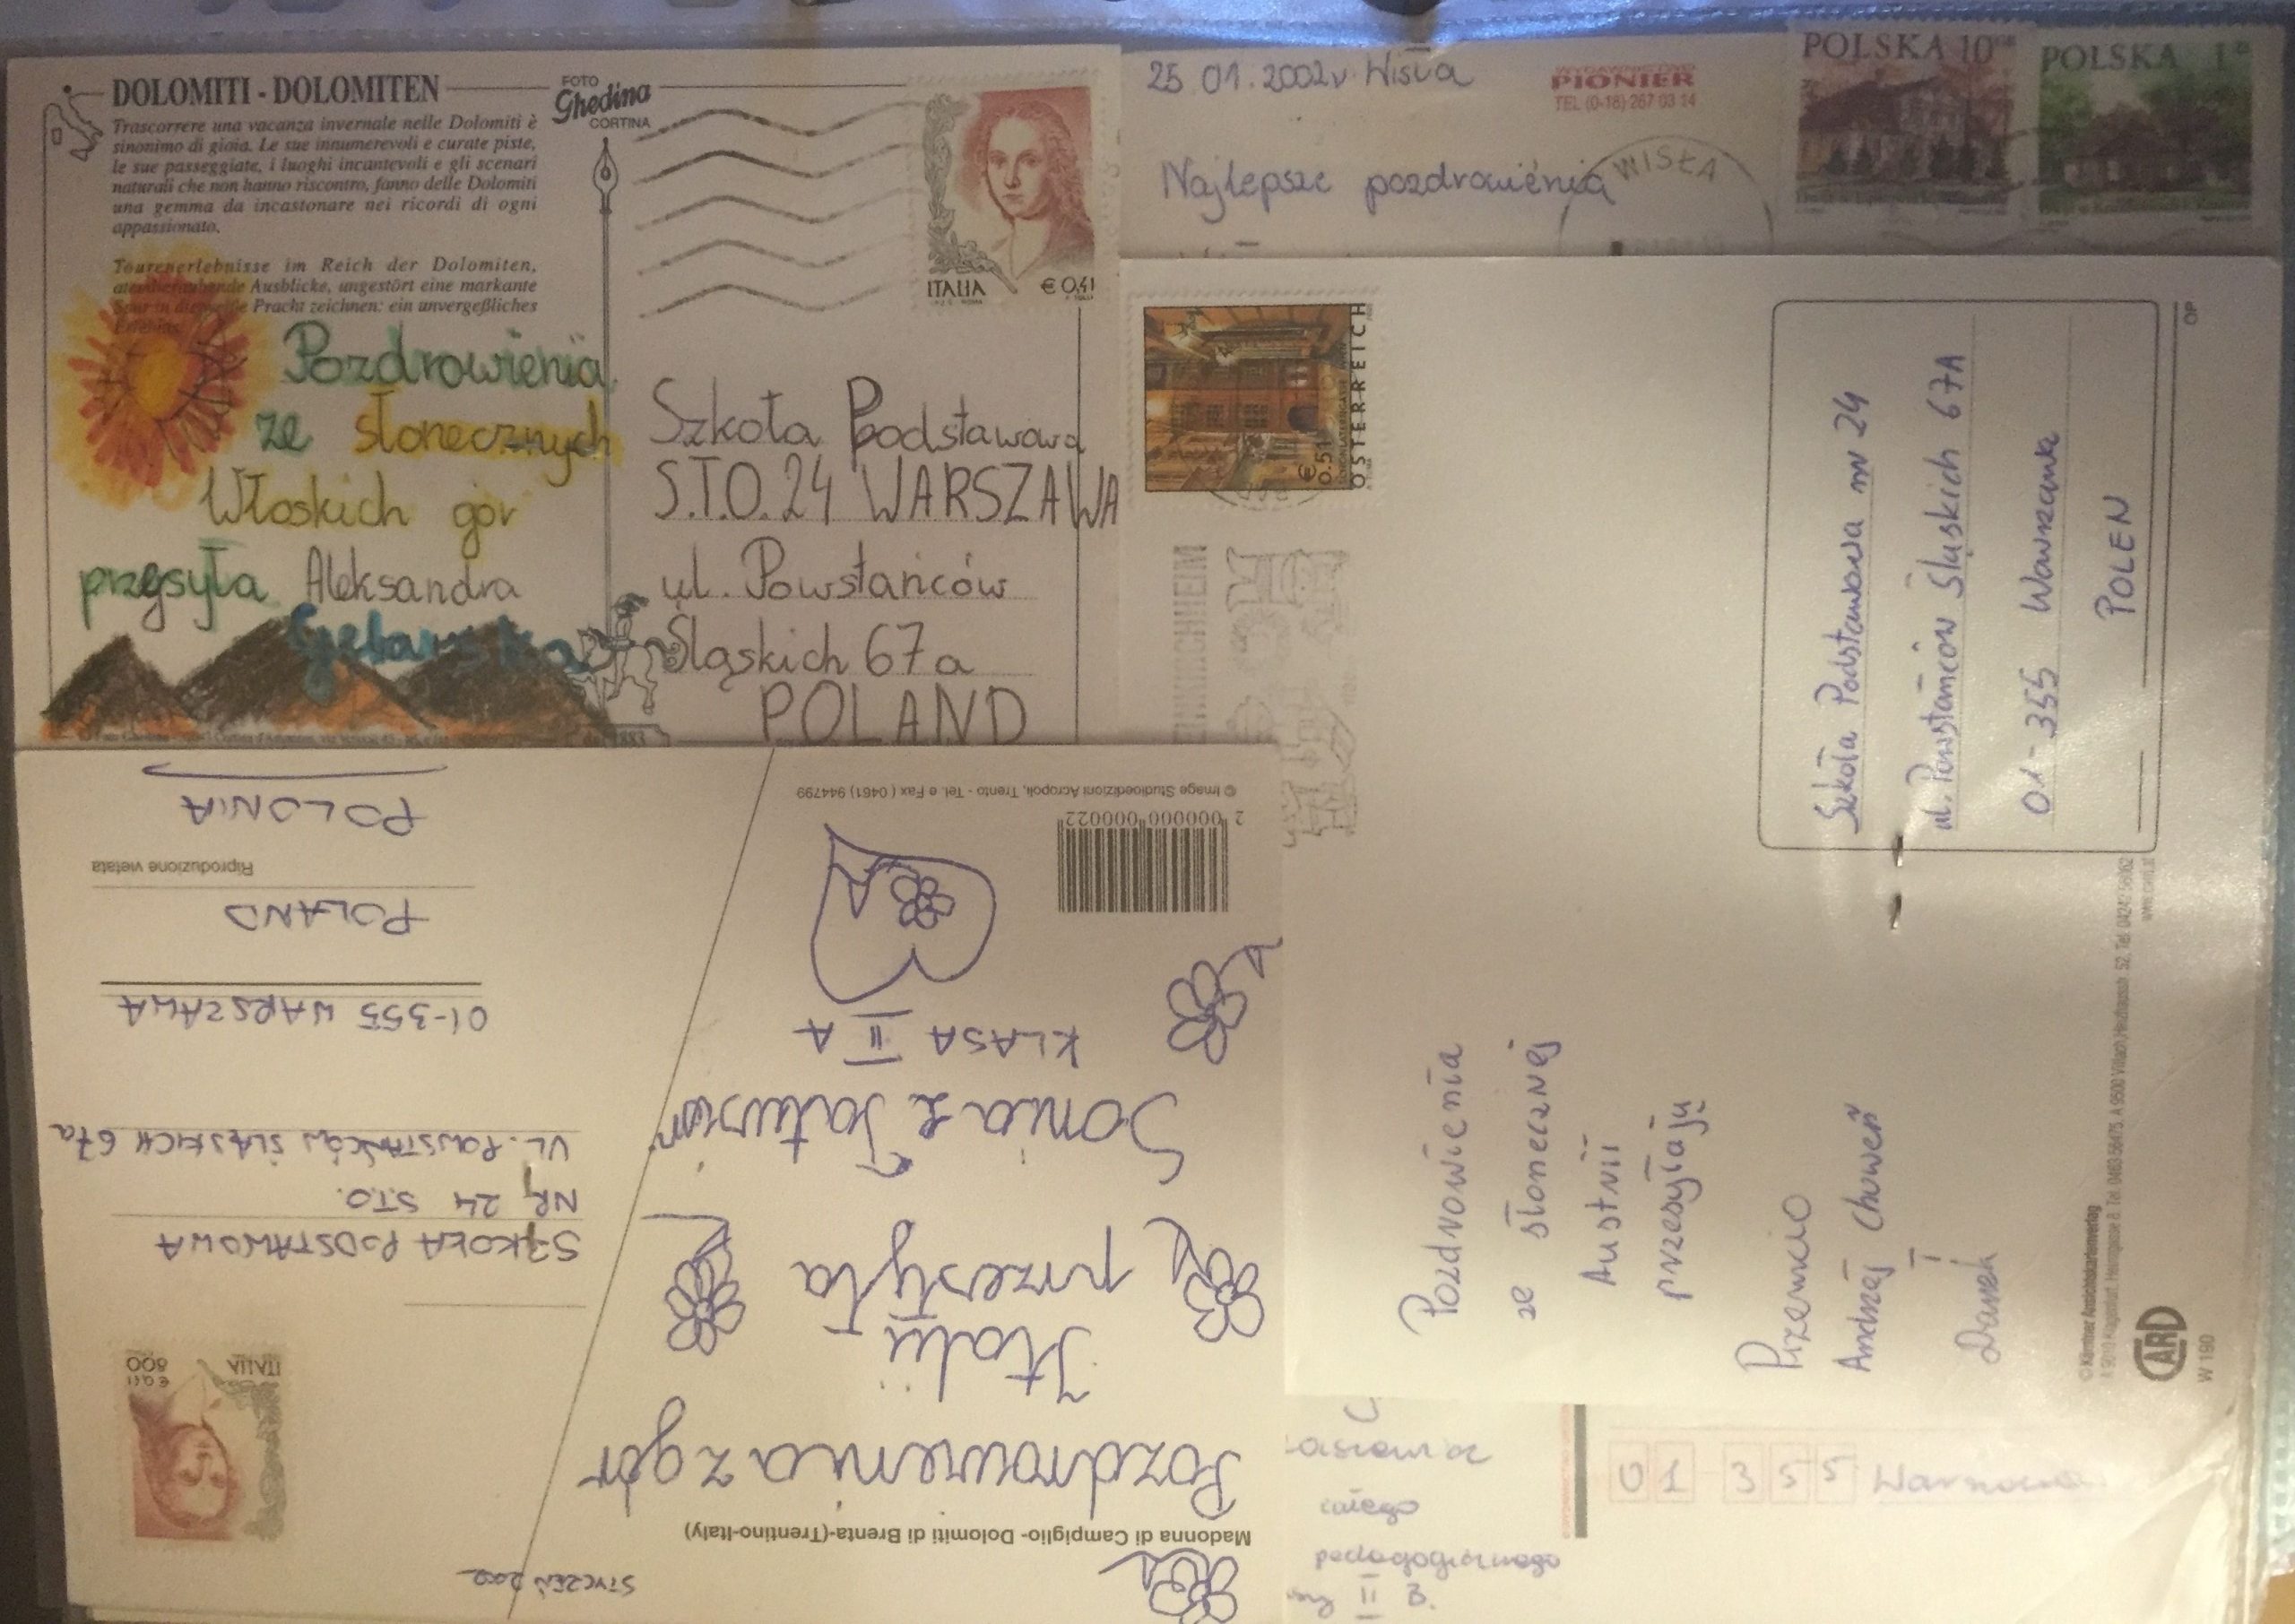 DOLOMITI - DOLOMITEN
Trascorrere una vacanza invernale nelle Dolomiti è
sinonimo di gioia. Le sue innumerevoli e curate piste,
le sue passeggiate, i luoghi incantevoli e gli scenari
naturali che non hanno riscontro, fanno delle Dolomiti
una gemma da incastonare nei ricordi di ogni
appassionato.
Tourenerlebnisse im Reich der Dolomiten,
atemberaubende Ausblicke, ungestört eine markante
Spur in die weiße Pracht zeichnen: ein unvergeßliches
Erlebnis.
FOTO
Ghedina
CORTINA
ITALIA € 0,41
Pozdrowienia
ze słonecznych
Włoskich gór
przesyła Aleksandra
Szkoła Podstawowa
S.T.O. 24 WARSZAWA
ul. Powstańców
Śląskich 67a
POLAND
25.01.2002r. Wisła
Najlepsze pozdrowienia
WYDAWNICTWO
PIONIER
TEL (0-18) 267 03 14
WISŁA
POLSKA 10
POLSKA 1
€ 0.51
ÖSTERREICH
Szkoła Podstawowa nr 24
ul. Powstańców Śląskich 67A
01-355 Warszawa
POLEN
OP
Pozdrowienia
ze słonecznej
Austrii
przesyłają
Przemcio
Andrzej Chowań
i
Darek
© Kärntner Ansichtskartenverlag
CARD
W 190
STYCZEŃ 2002
Madonna di Campiglio- Dolomiti di Brenta-(Trentino-Italy)
Pozdrowienia z gór
Italii
przesyła
Sonia z Tatusiem
KLASA II A
2 000000 000022
© Image Studioedizioni Acropoli, Trento - Tel. e Fax (0461) 944799
ITALIA
800
€ 0,41
SZKOŁA PODSTAWOWA
NR 24 STO.
UL. POWSTAŃCÓW ŚLĄSKICH 67a
01-355 WARSZAWA
POLAND
Riproduzione vietata
POLONIA
całego
pedagogicznego
II B.
01 355 Warszawa